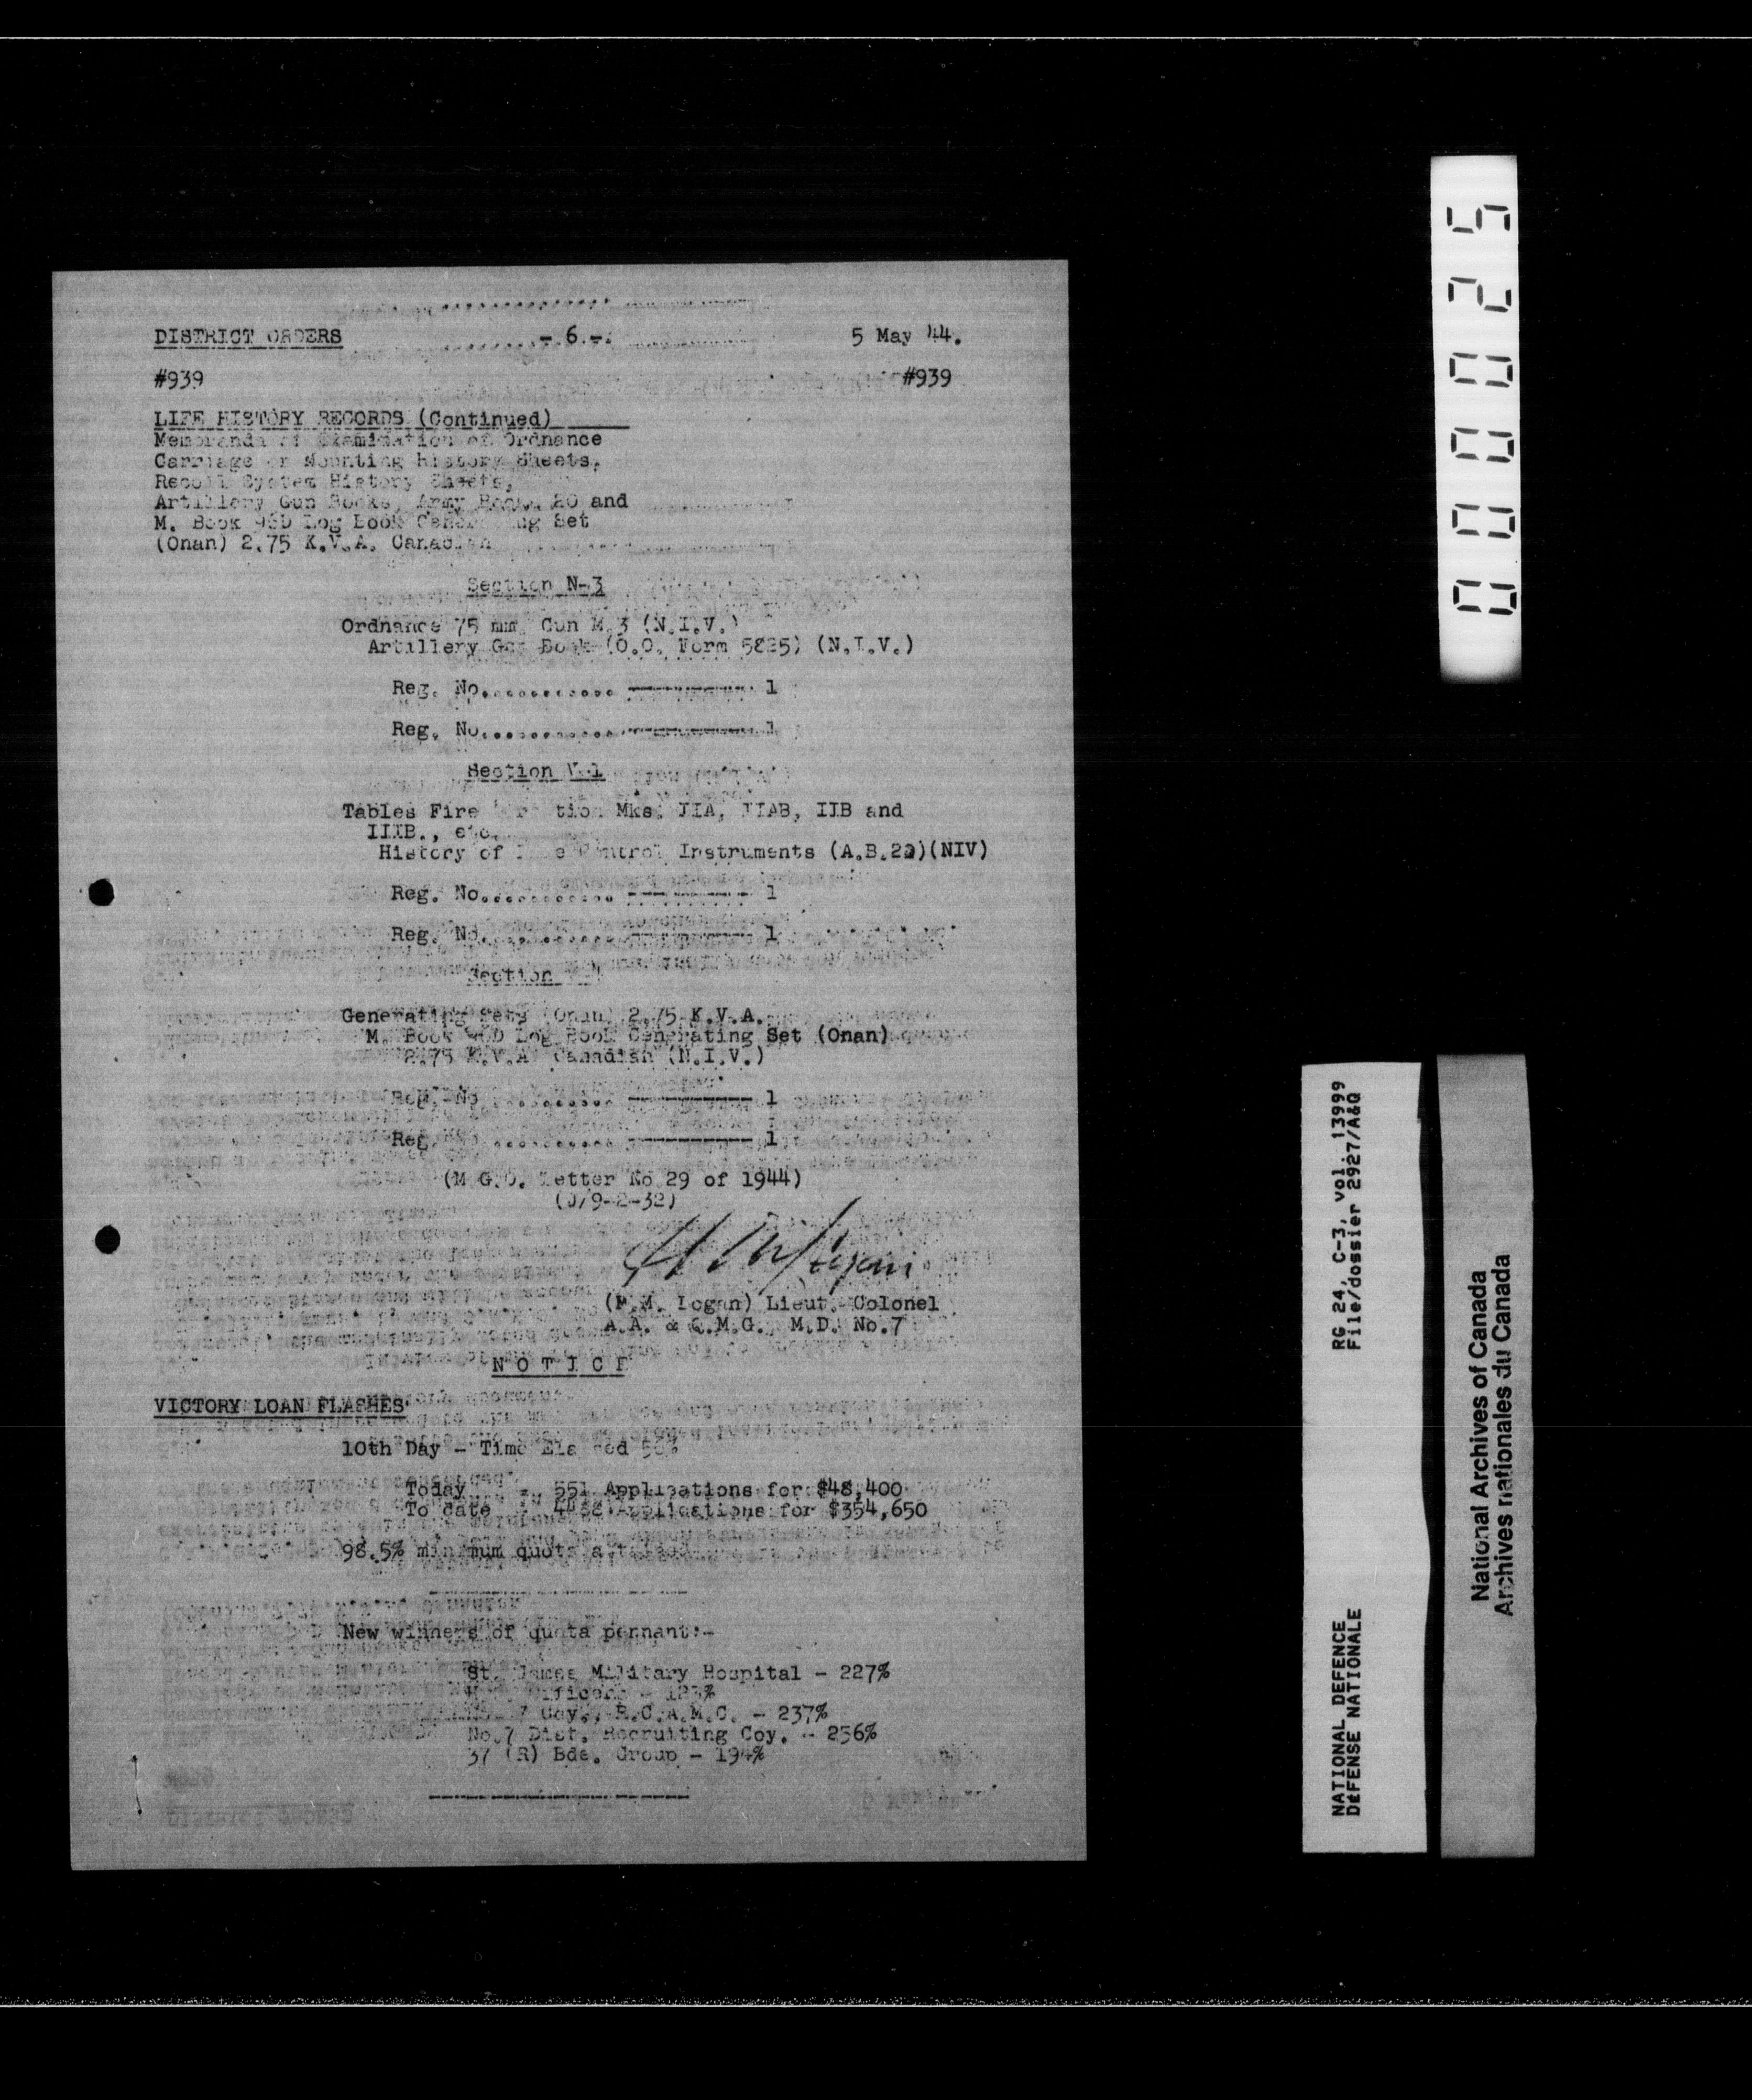 DISTRICT ORDERS - 6 - 5 May '44.
#939 #939
LIFE HISTORY RECORDS (Continued)
Memoranda of Examination of Ordnance
Carriage or Mounting History Sheets,
Recoil System History Sheets,
Artillery Gun Books, Army Book 20 and
M. Book 96D Log Book Generating Set
(Onan) 2.75 K.V.A. Canadian
Section N-3
Ordnance 75 mm. Gun M.3 (N.I.V.)
Artillery Gun Book (O.O. Form 5825) (N.I.V.)
Reg. No............ ---------- 1
Reg. No............ ---------- 1
Section V-1
Tables Fire Mks. IIA, IIAB, IIB and
IIIB., etc.
History of Fire Control Instruments (A.B.20)(NIV)
Reg. No............ ---------- 1
Reg. No............ ---------- 1
Section
Generating Sets (Onan) 2.75 K.V.A.
M. Book 96D Log Book Generating Set (Onan)
2.75 K.V.A. Canadian (N.I.V.)
Reg. No ........... ---------- 1
Reg. ........... ---------- 1
(M.G.O. Letter No 29 of 1944)
(J/9-2-32)
Logan) Lieut.-Colonel
A.A. & Q.M.G., M.D. No.7
NOTICE
VICTORY LOAN FLASHES
10th Day - Time Elapsed
Today - 551 Applications for $48,400
To date - Applications for $354,650
98.5% minimum quota attained
New winners of quota pennant:-
St. James Military Hospital - 227%
Officers
7 Coy., R.C.A.M.C. - 237%
No.7 Dist. Recruiting Coy. - 256%
37 (R) Bde. Group - 194%
000025
RG 24, C-3, vol. 13999
File/dossier 2927/A&Q
NATIONAL DEFENCE
DEFENSE NATIONALE
National Archives of Canada
Archives nationales du Canada